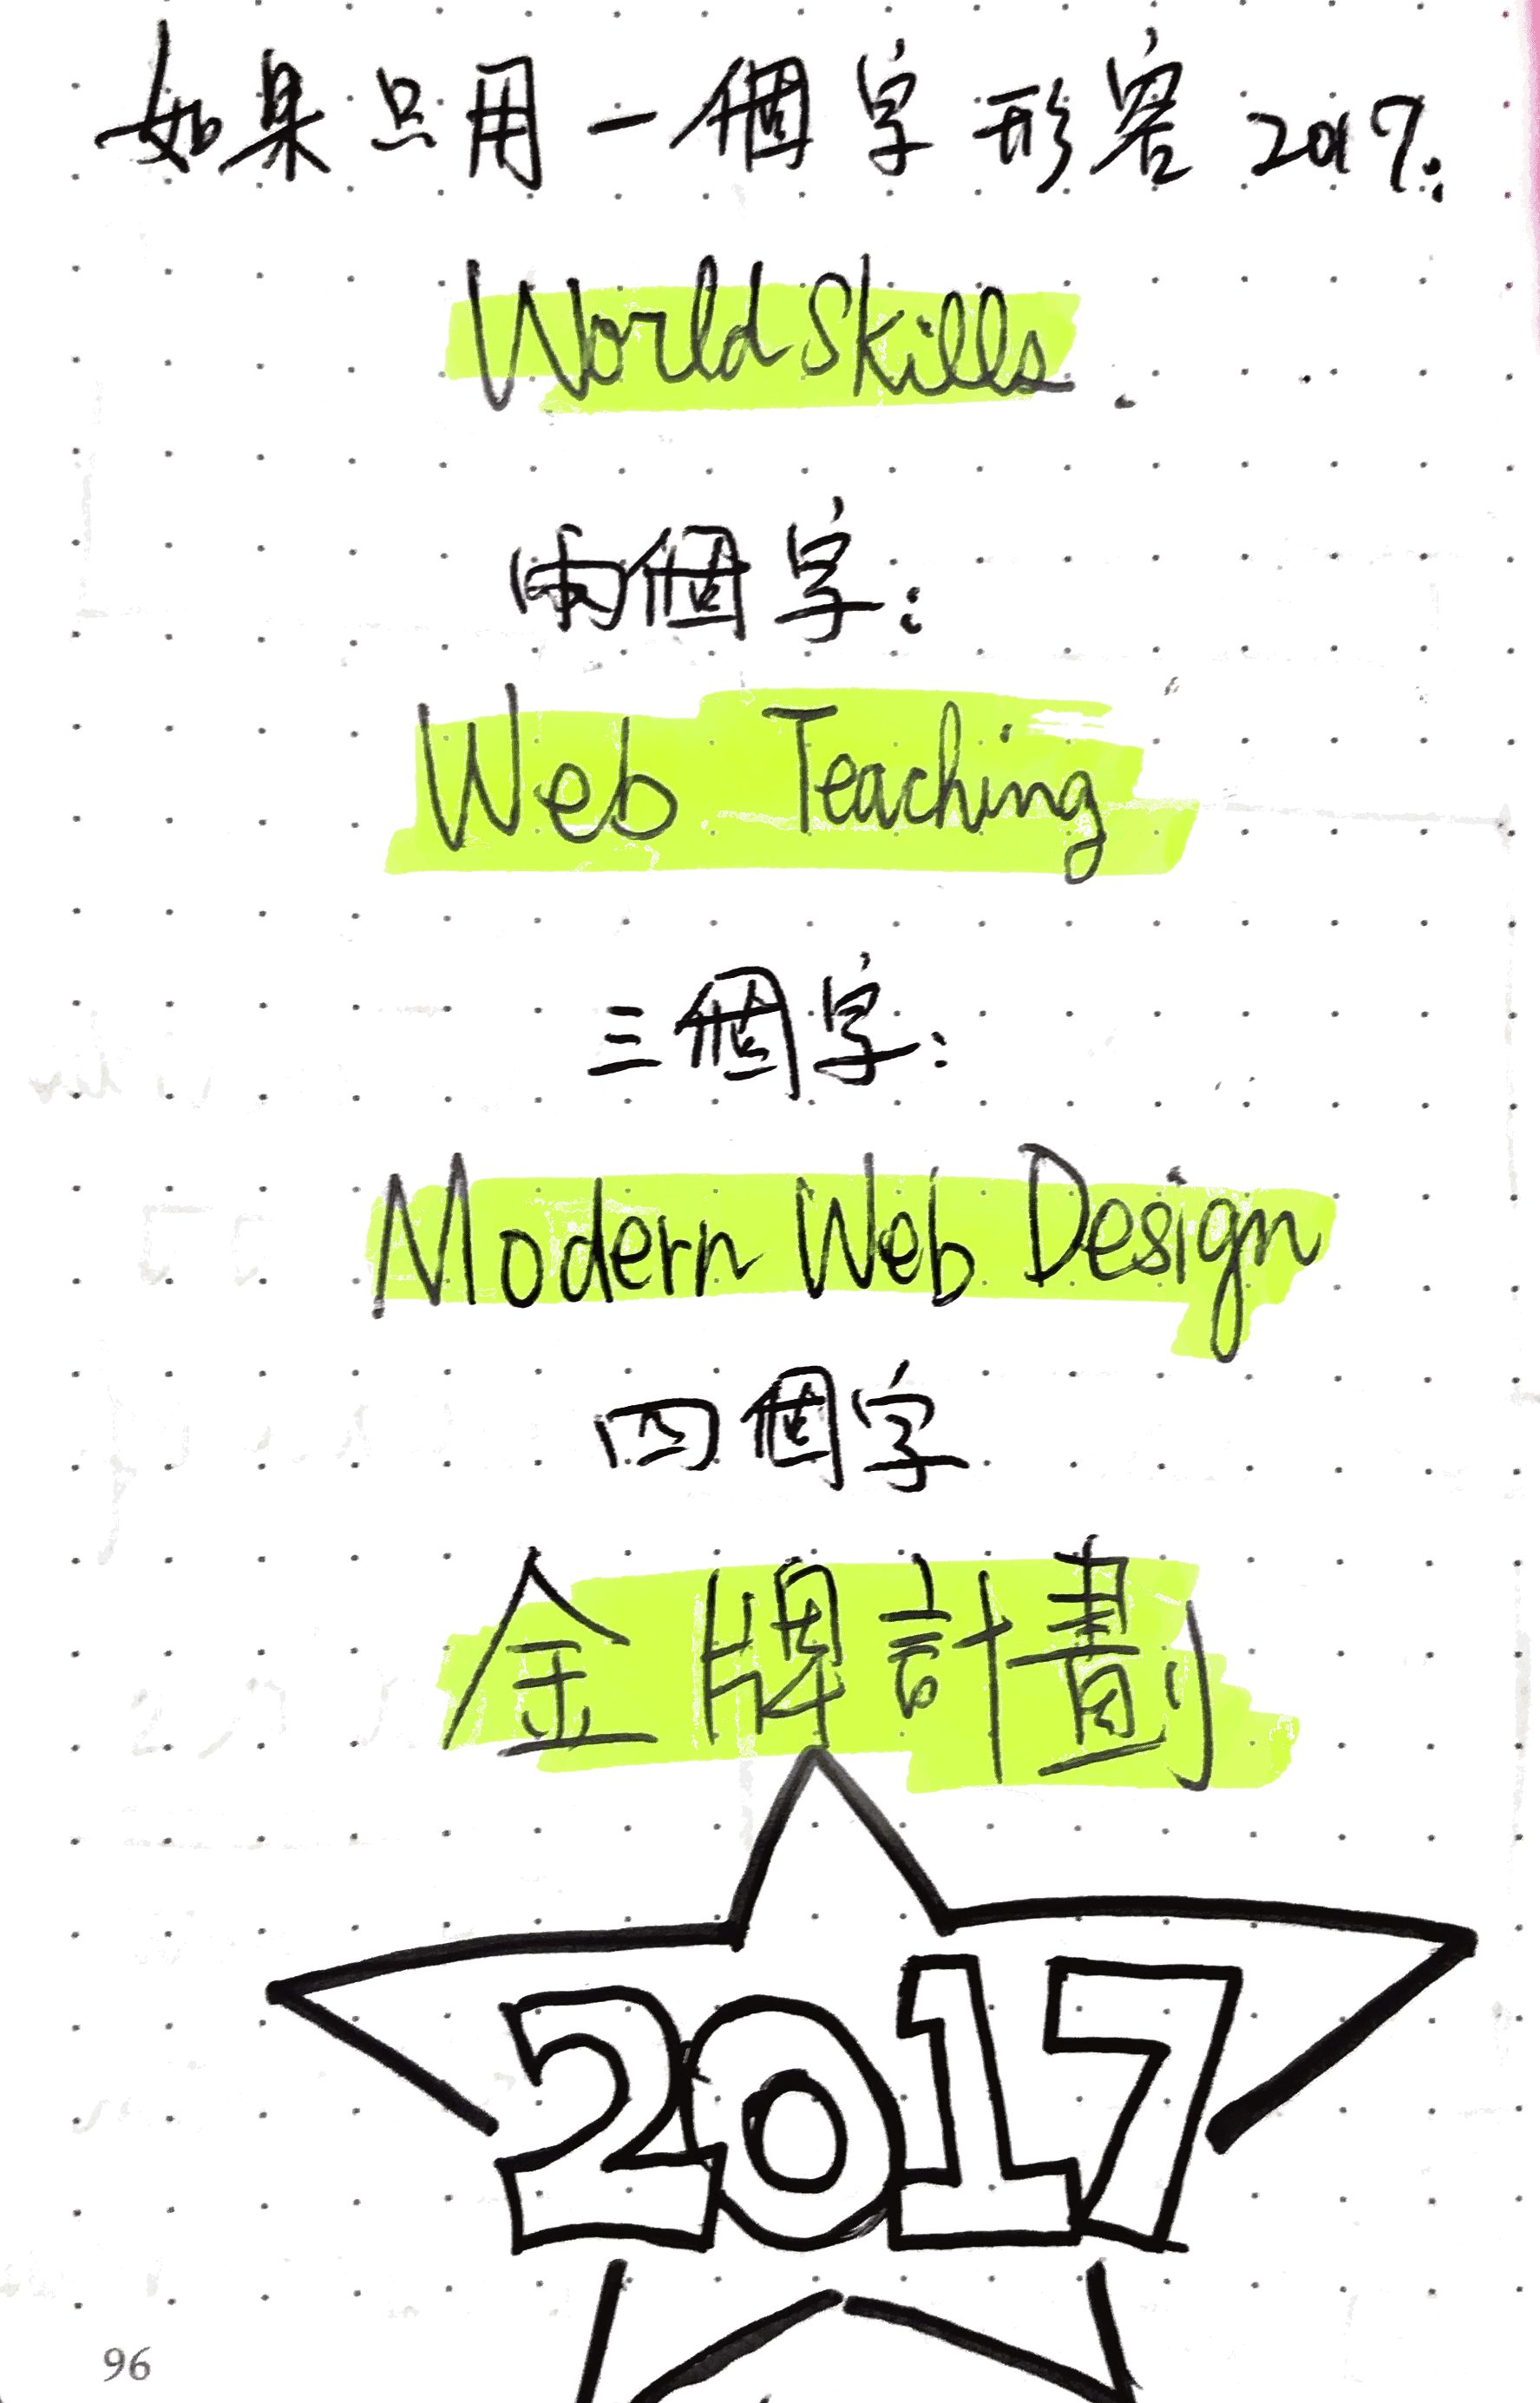 如果只用一個字形容2017:
WorldSkills.
兩個字:
Web Teaching
三個字:
Modern Web Design
四個字
金牌計劃
2017
96